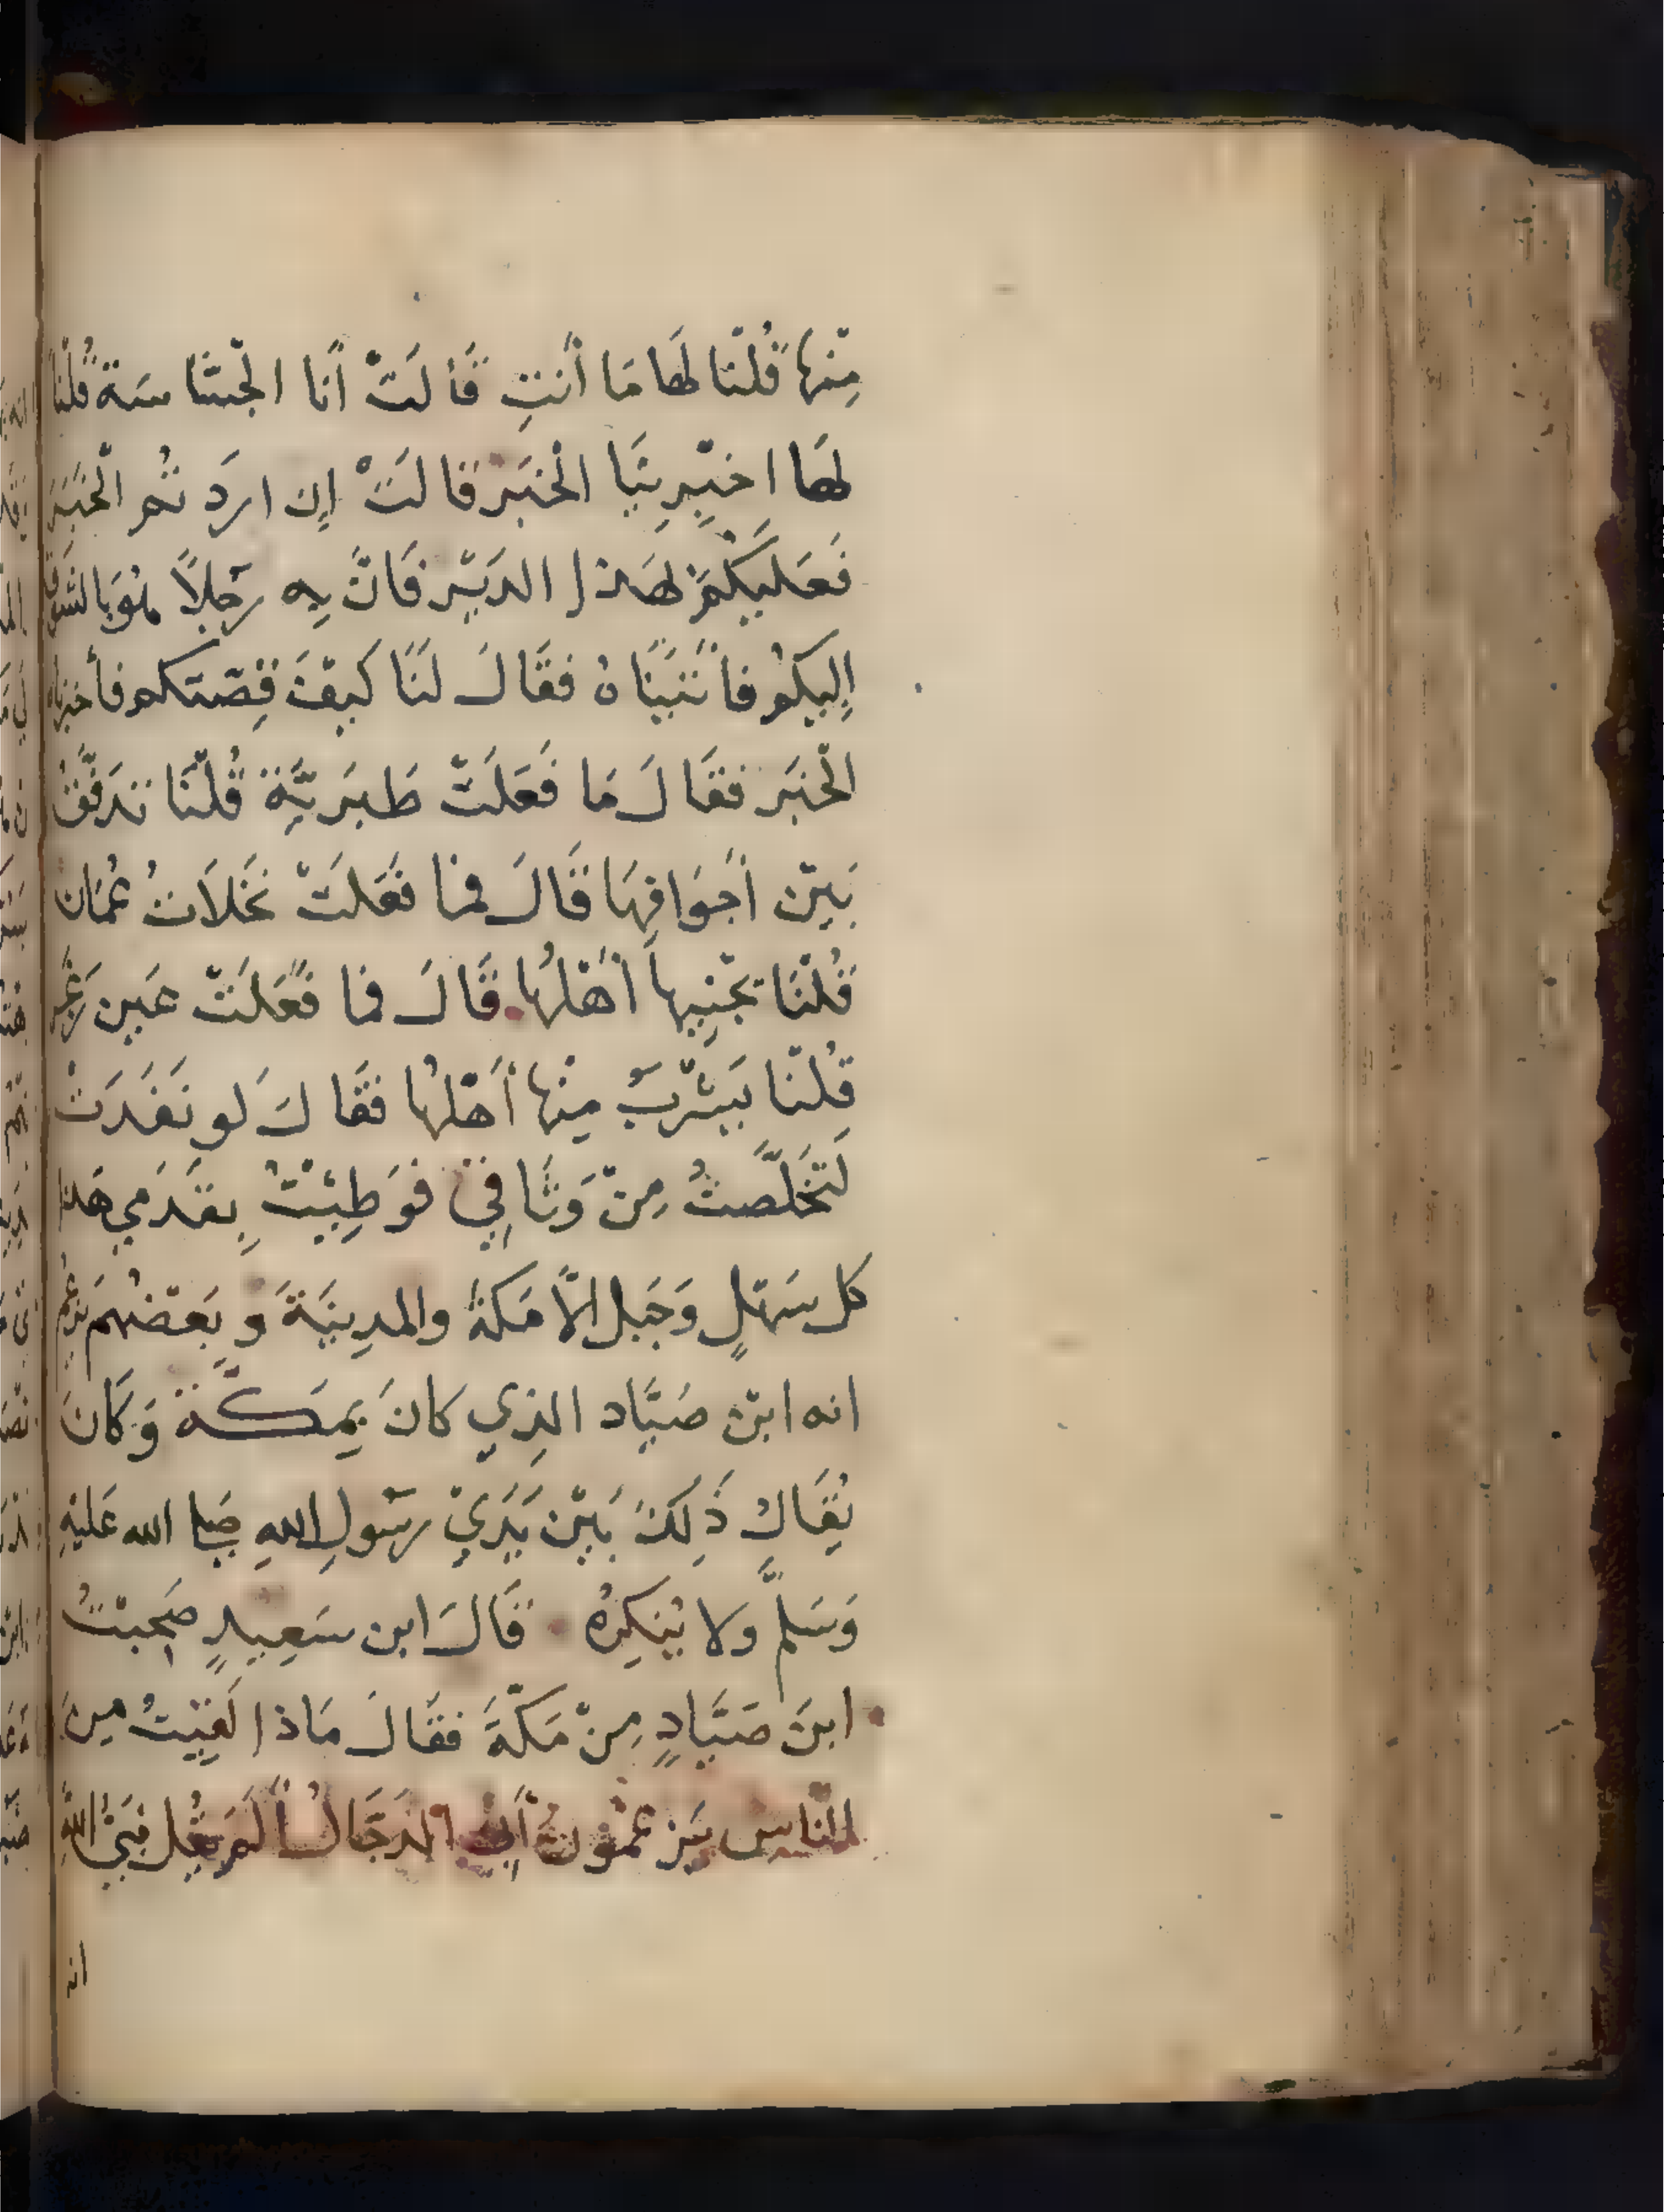 مِنْهَا قُلْنَا لَهَا مَا أَنْتِ قَالَتْ أَنَا الْجَسَّاسَة قُلْنَا
لَهَا اخْبِرِينَا الْخَبَر قَالَتْ إِن ارَدتُم الْخَبَرَ
فَعَلَيكُم بهَذا الدَيْر فَانَّ بِه رَجُلاً هُوَ بالشوق
إِليكُم فأتَيْنَاهُ فَقَالَ لَنَا كَيْفَ قِصّتكم فأخبرناه
الْخبَر فقَالَ مَا فَعَلَتْ طَبَرِيَّة قُلْنَا تدَفَّقُ
بَيْن أَجوَافِهَا قَالَ فما فَعَلَتْ نَخَلَاتُ عُمَان
قُلْنَا يَجْنِيها أَهْلُهَا قَالَ فما فَعَلَتْ عَين زُغَر
قُلْنَا يَشْرَبُ مِنْها أَهْلُهَا فَقَالَ لو نَفَدَتْ
لَتَخَلَّصتُ مِنْ وَثَاقِي فوَطِئتُ بِقَدَمِي هَذا
كل سَهْلٍ وَجَبل الَّا مَكَةَ والمدِينَةَ وَ بَعْضُهم يَزعُم
انه ابْن صَيَّاد الذِي كانَ بِمَكَّة وَكَانَ
يُقَالُ ذَلِكَ بَيْن يَدَيْ رَسُولِ اللهِ صَلى الله عَليْهِ
وَسَلمَّ ولا يُنكِرهُ قَالَ ابن سَعِيدٍ صَحِبتُ
ابنَ صَيَّادٍ مِنْ مَكّةَ فقَالَ مَاذا لَقِيتُ مِنَ
النَّاسِ يَزعمُونَ أَنِّي الدَجَّالُ أَلَم يَقُل نَبيُّ اللهِ
انه